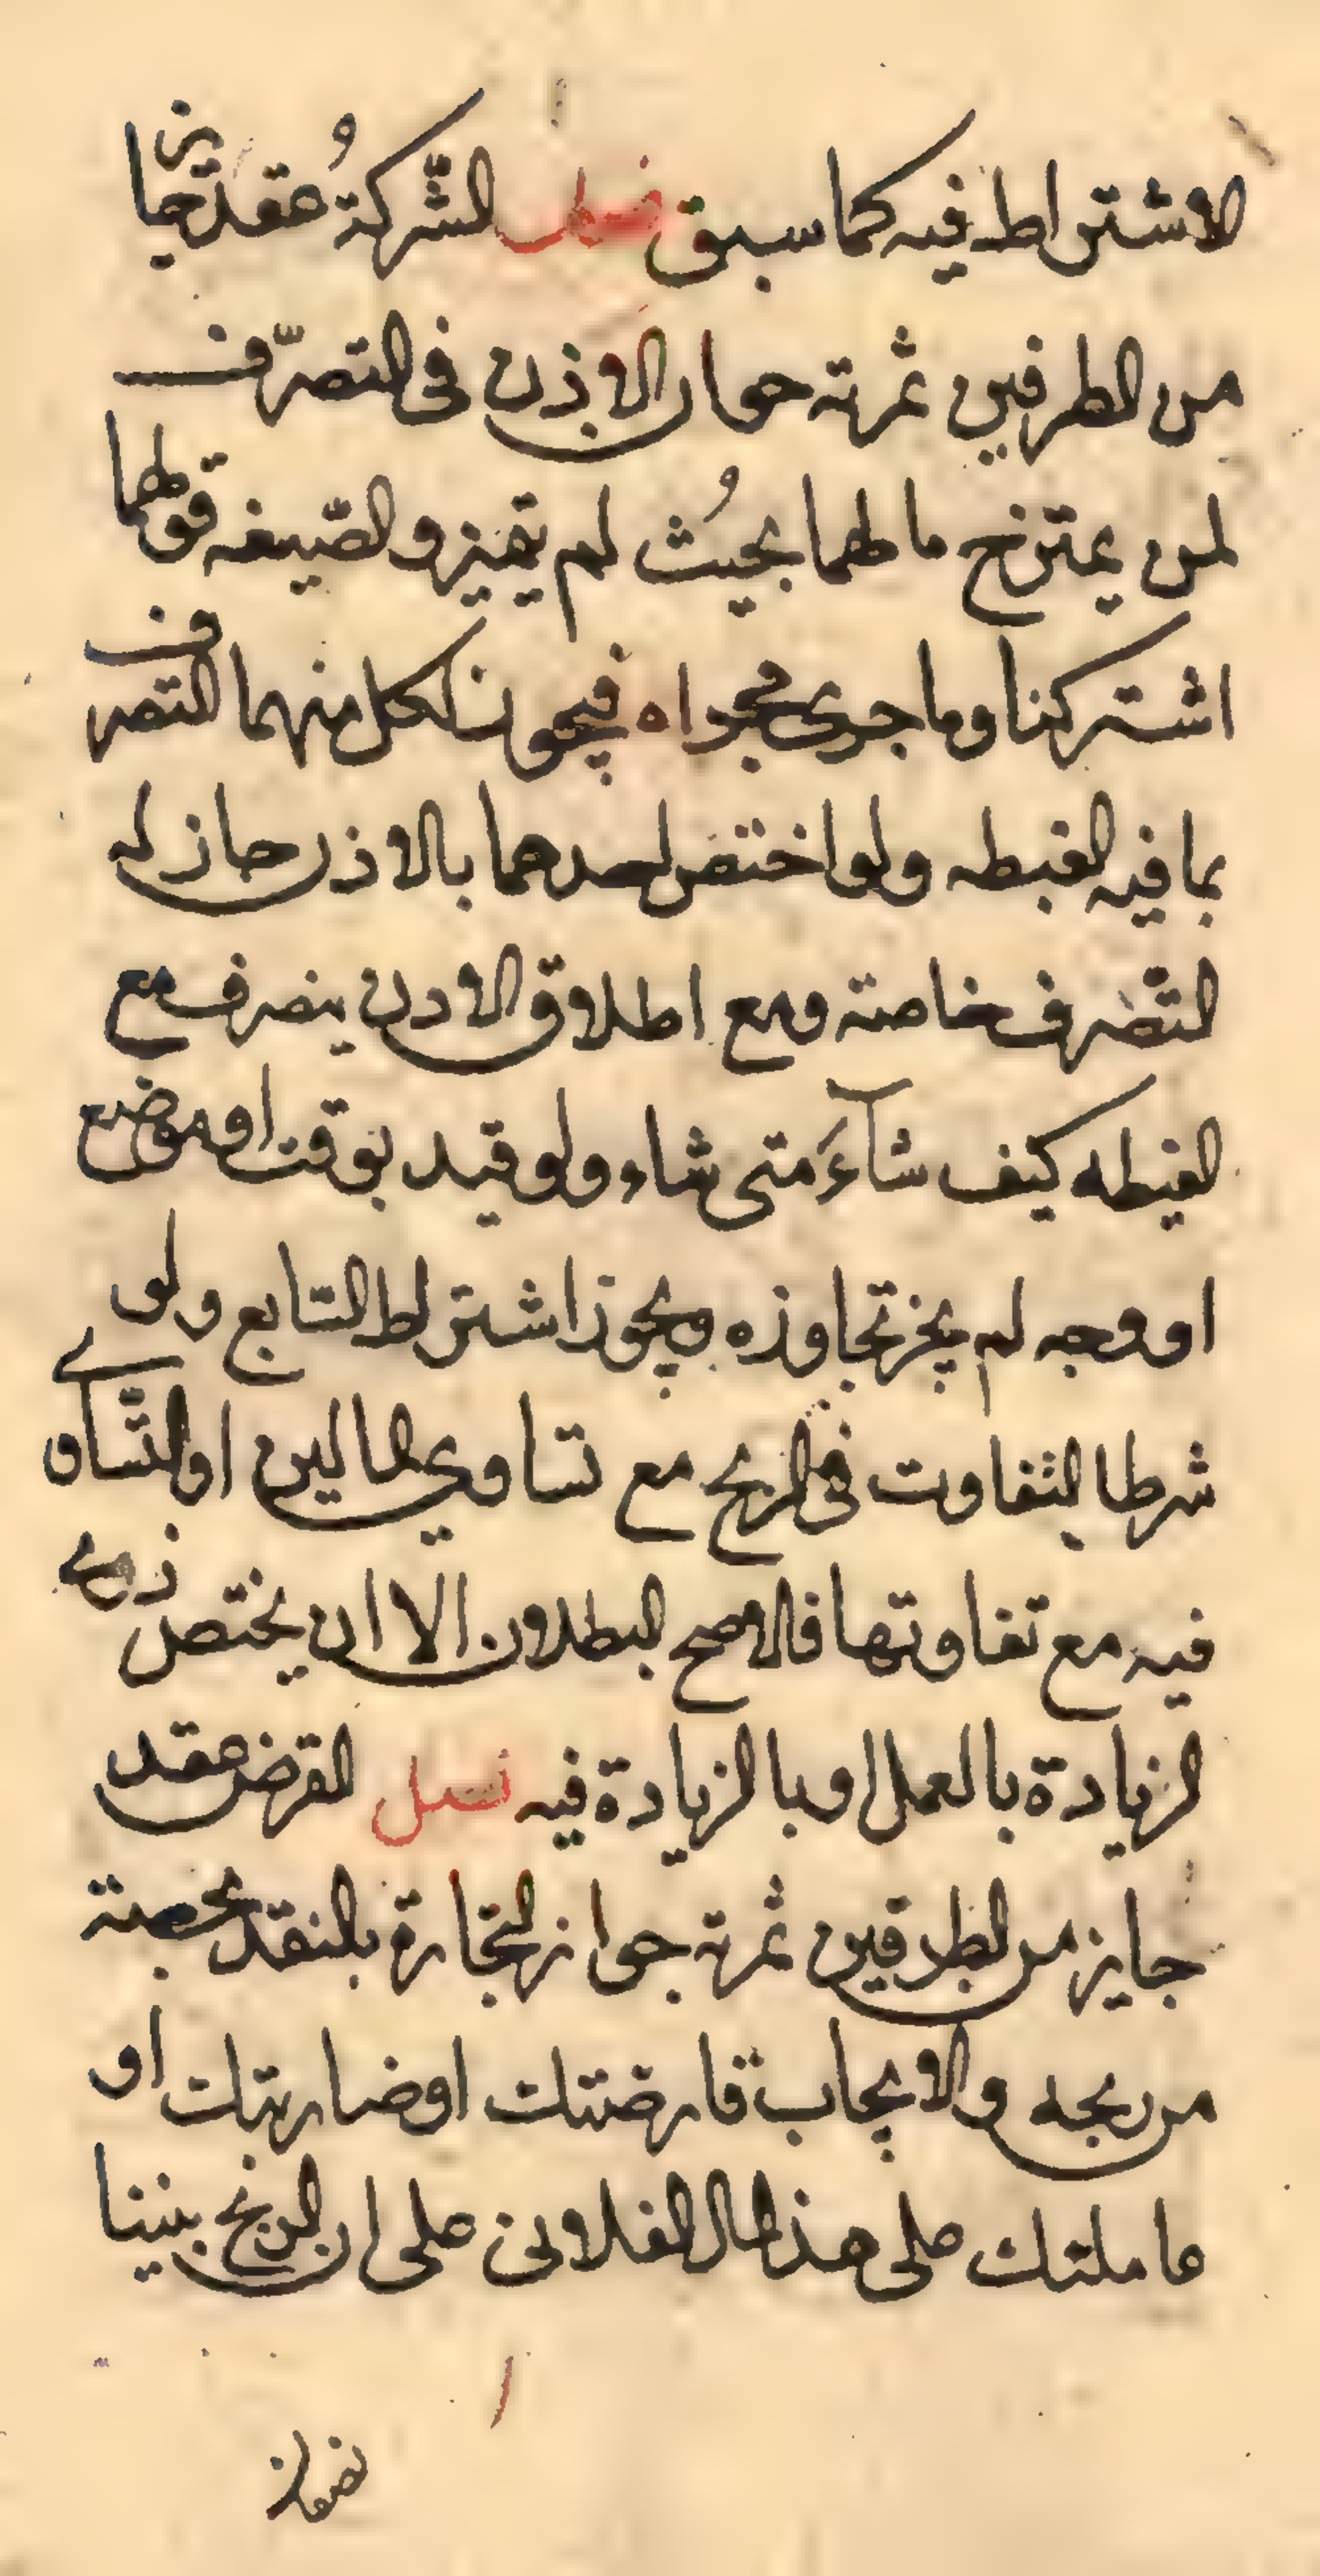 الاشتراط فيه كما سبق فصل الشّركةُ عقد جايز
من الطرفين ثمرته جواز الاذن فى التصرّف
لمن يمتزج مالهما بحيثُ لم يتميز والصّيغه قولهما
اشتركنا وما جرى مجراه فيجوز لكل منهما التصرف
بما فيه الغبطه ولو اختص احدهما بالاذن جاز له
التّصرف خاصته ومع اطلاق الادن يتصرف مع
الغبطه كيف شآءَ متى شاء ولو قيد بوقت او موضع
او وجه لم يجز تجاوزه ويجوز اشتراط التابع ولو
شرطا التفاوت فى الربح مع تساوي المالين او التّساوي
فيه مع تفاوتهما فالاصح البطلان الا ان يختص ذو
الزيادة بالعمل او بالزيادة فيه فصل القرض عقد
جايز من الطرفين ثمرته جواز التجارة بالنقد بحصته
من ربحه والايجاب قارضتك او ضاربتك او
عاملتك على هذا المال الفلانى على ان الربح بيننا
نصفان